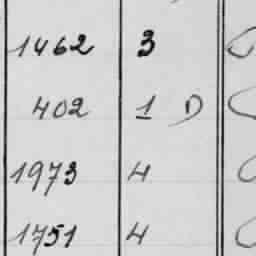 1462 3
402 1 D
1973 4
1751 4